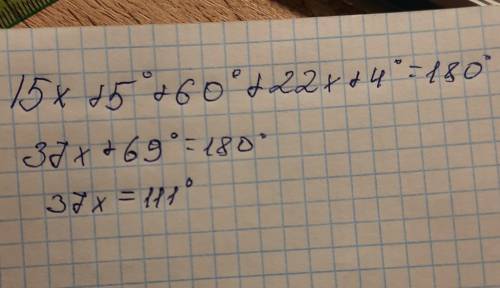 15x+5°+60°+22x+4°=180°
37x+69°=180°
37x=111°